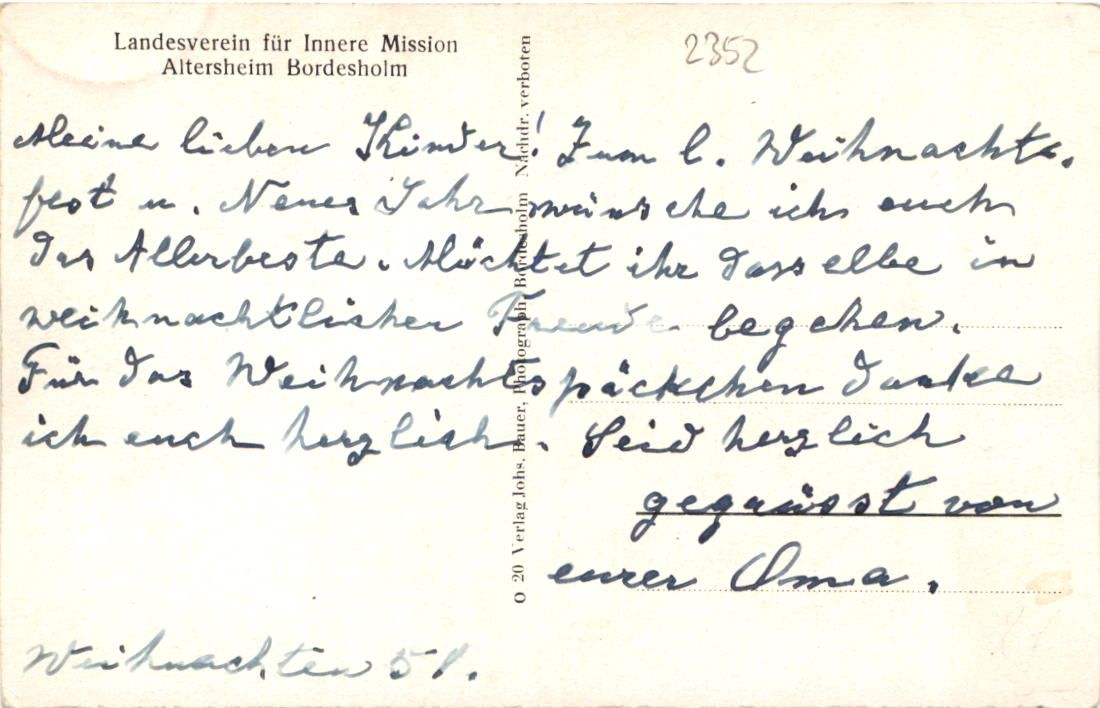 Landesverein für Innere Mission
Altersheim Bordesholm
2352
Meine lieben Kinder! Zum l. Weihnachts-
fest u. Neues Jahr wünsche ich euch
das Allerbeste. Möchtet ihr dasselbe in
weihnachtlicher Freude begehen.
Für das Weihnachtspäckchen danke
ich euch herzlich. Seid herzlich
gegrüsst von
eurer Oma.
Weihnachten 51.
O 20 Verlag Johs. Bauer, Photograph, Bordesholm Nachdr. verboten